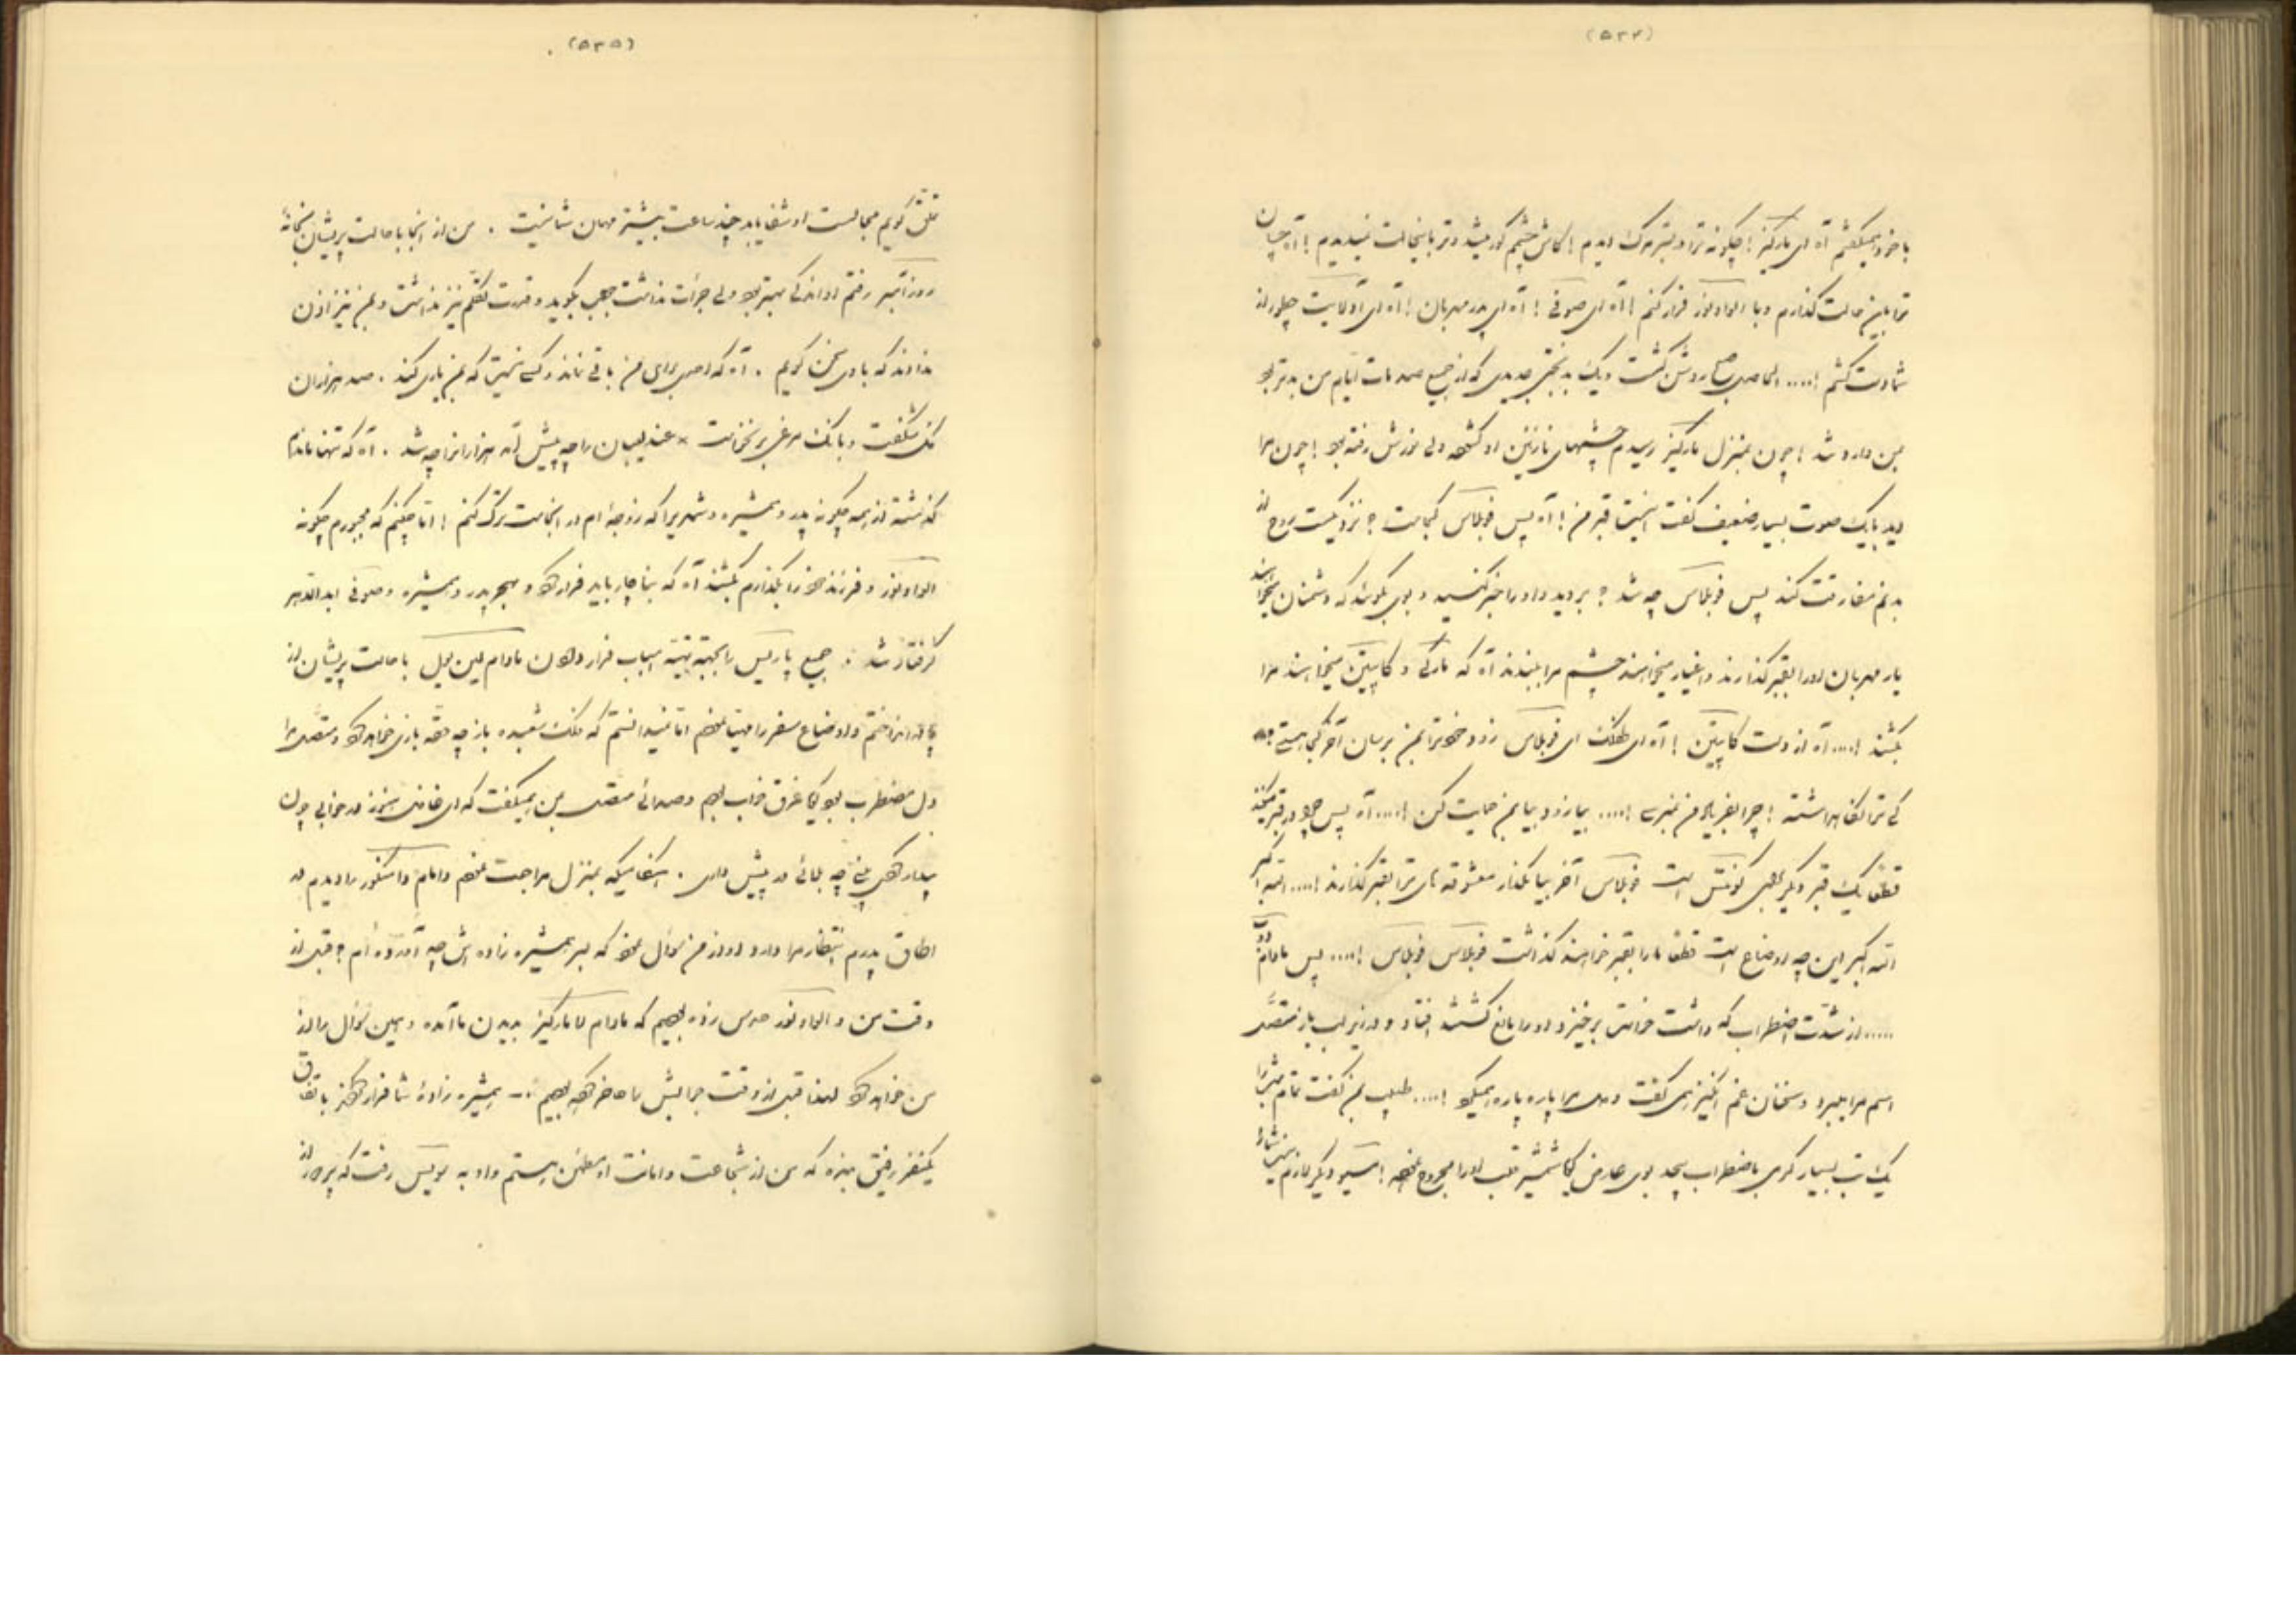 (۵۳۴)
با خود میگفتم آه ای مارکیز! چگونه ترا در بستر مرگ دیدم! کاش چشمم کور میشد و ترا باینحالت نمیدیدم! آه چسان
ترا باین حالت گذارم و با الواونور فرار کنم! آه ای صوفی! آه ای پدر مهربان! آه ای آدلایت چطور از
شماها دست کشم!.... الحاصل صبح روشن گشت و یک بدبختی جدیدی که از جمیع صدمات ایام من بدتر بود
بمن وارد شد! چون بمنزل مارکیز رسیدم چشمهای نازنین او گشوده ولی نورش رفته بود! چون مرا
دید بایک صوت بسیار ضعیف گفت اینست قبر من! آه پس فوبلاس کجاست؟ نزدیکست روح از
بدنم مفارقت کند پس فوبلاس چه شد؟ بروید و او را خبر کنید و بوی بگوئید که دشمنان میخواهند
یار مهربان او را بقبر گذارند و اغیار میخواهند چشم مرا ببندند آه که مارکی و کاپیتن میخواهند مرا
بکشند!.... آه از دست کاپیتن! آه ای فوبلاس زود خود را بمن برسان آخر کجا هستی
کی ترا نگاهداشته! چرا بفریاد من نمیرسی!.... بیا زود بیا بمن حمایت کن!.... آه پس چرا دو قبر میکنند
قطعا یک قبر دیگر برای کونتس است فوبلاس آخر بیا مگذار معشوقه های ترا بقبر گذارند!.... الله اکبر
الله اکبر این چه اوضاع است قطعا ما را بقبر خواهند گذاشت فوبلاس فوبلاس!.... پس مادام دو ب
..... از شدت اضطراب که داشت خواست برخیزد او را مانع گشتند افتاد و در زیر لب باز متصل
اسم مرا میبرد و سخنان غم انگیز همی گفت و دل مرا پاره پاره میکرد!.... طبیب بمن گفت تمام شب را
یک تب بسیار گرمی با اضطراب بیحد بوی عارض گویا شمشیر قلب او را مجروح نموده! مسیو دیگر لازم نیست بشما
(۵۳۵)
تملق گویم محالست او شفا یابد چند ساعت بیشتر مهمان شما نیست . من از آنجا با حالت پریشان بخانه
روزآمبر رفتم او اندکی بهتر بود ولی جرأت نداشت عجب بگوید و قدرت تکلم نیز نداشت و بمن نیز اذن
ندادند که با وی سخن گویم . آه که امیدی برای من باقی نماند و کسی نیست که بمن یاری کند . صد هزاران
گل شکفت و بانگ مرغی برنخاست × عندلیبان را چه پیش آمد هزاران را چه شد . آه که تنها ماندم
گذشته از همه چگونه پدر و همشیره و شهریرا که زوجه ام در آنجاست ترک کنم! اما چکنم که مجبورم چگونه
الواونور و فرزند خود را بگذارم بکشند آه که بناچار باید فرار کرد و بهجر پدر و همشیره و صوفی ابد الدهر
گرفتار شد : جمیع پاریس را بجهة تهیه اسباب فرار دادن مادام لین یول با حالت پریشان از
پا در انداختم و اوضاع سفر را مهیا نمودم اما نمیدانستم که فلک شعبده باز چه حقه بازی خواهد کرد و متصل مرا
دل مضطرب بود گویا غرق خواب بودم و صدائی متصل بمن همیگفت که ای غافل هنوز در خوابی چون
بیدار گردی بینی چه بلائی در پیش داری . هنگامیکه بمنزل مراجعت نمودم مادام داسنکور را دیدم در
اطاق پدرم انتظار مرا دارد و از من سؤال نمود که بسر همشیره زاده اش چه آورده ام؟ قبل از
وقت من و الواونور حدس زده بودیم که مادام لامارکیز بدیدن ما آمده و همین سؤال را از
من خواهد کرد لهذا قبل از وقت جوابش را حاضر کرده بودیم :- همشیره زادۀ شما فرار کرد باتفاق
یکنفر رفیق بنده که من از شجاعت و امانت او مطمئن هستم و او به سویس رفت که پدر